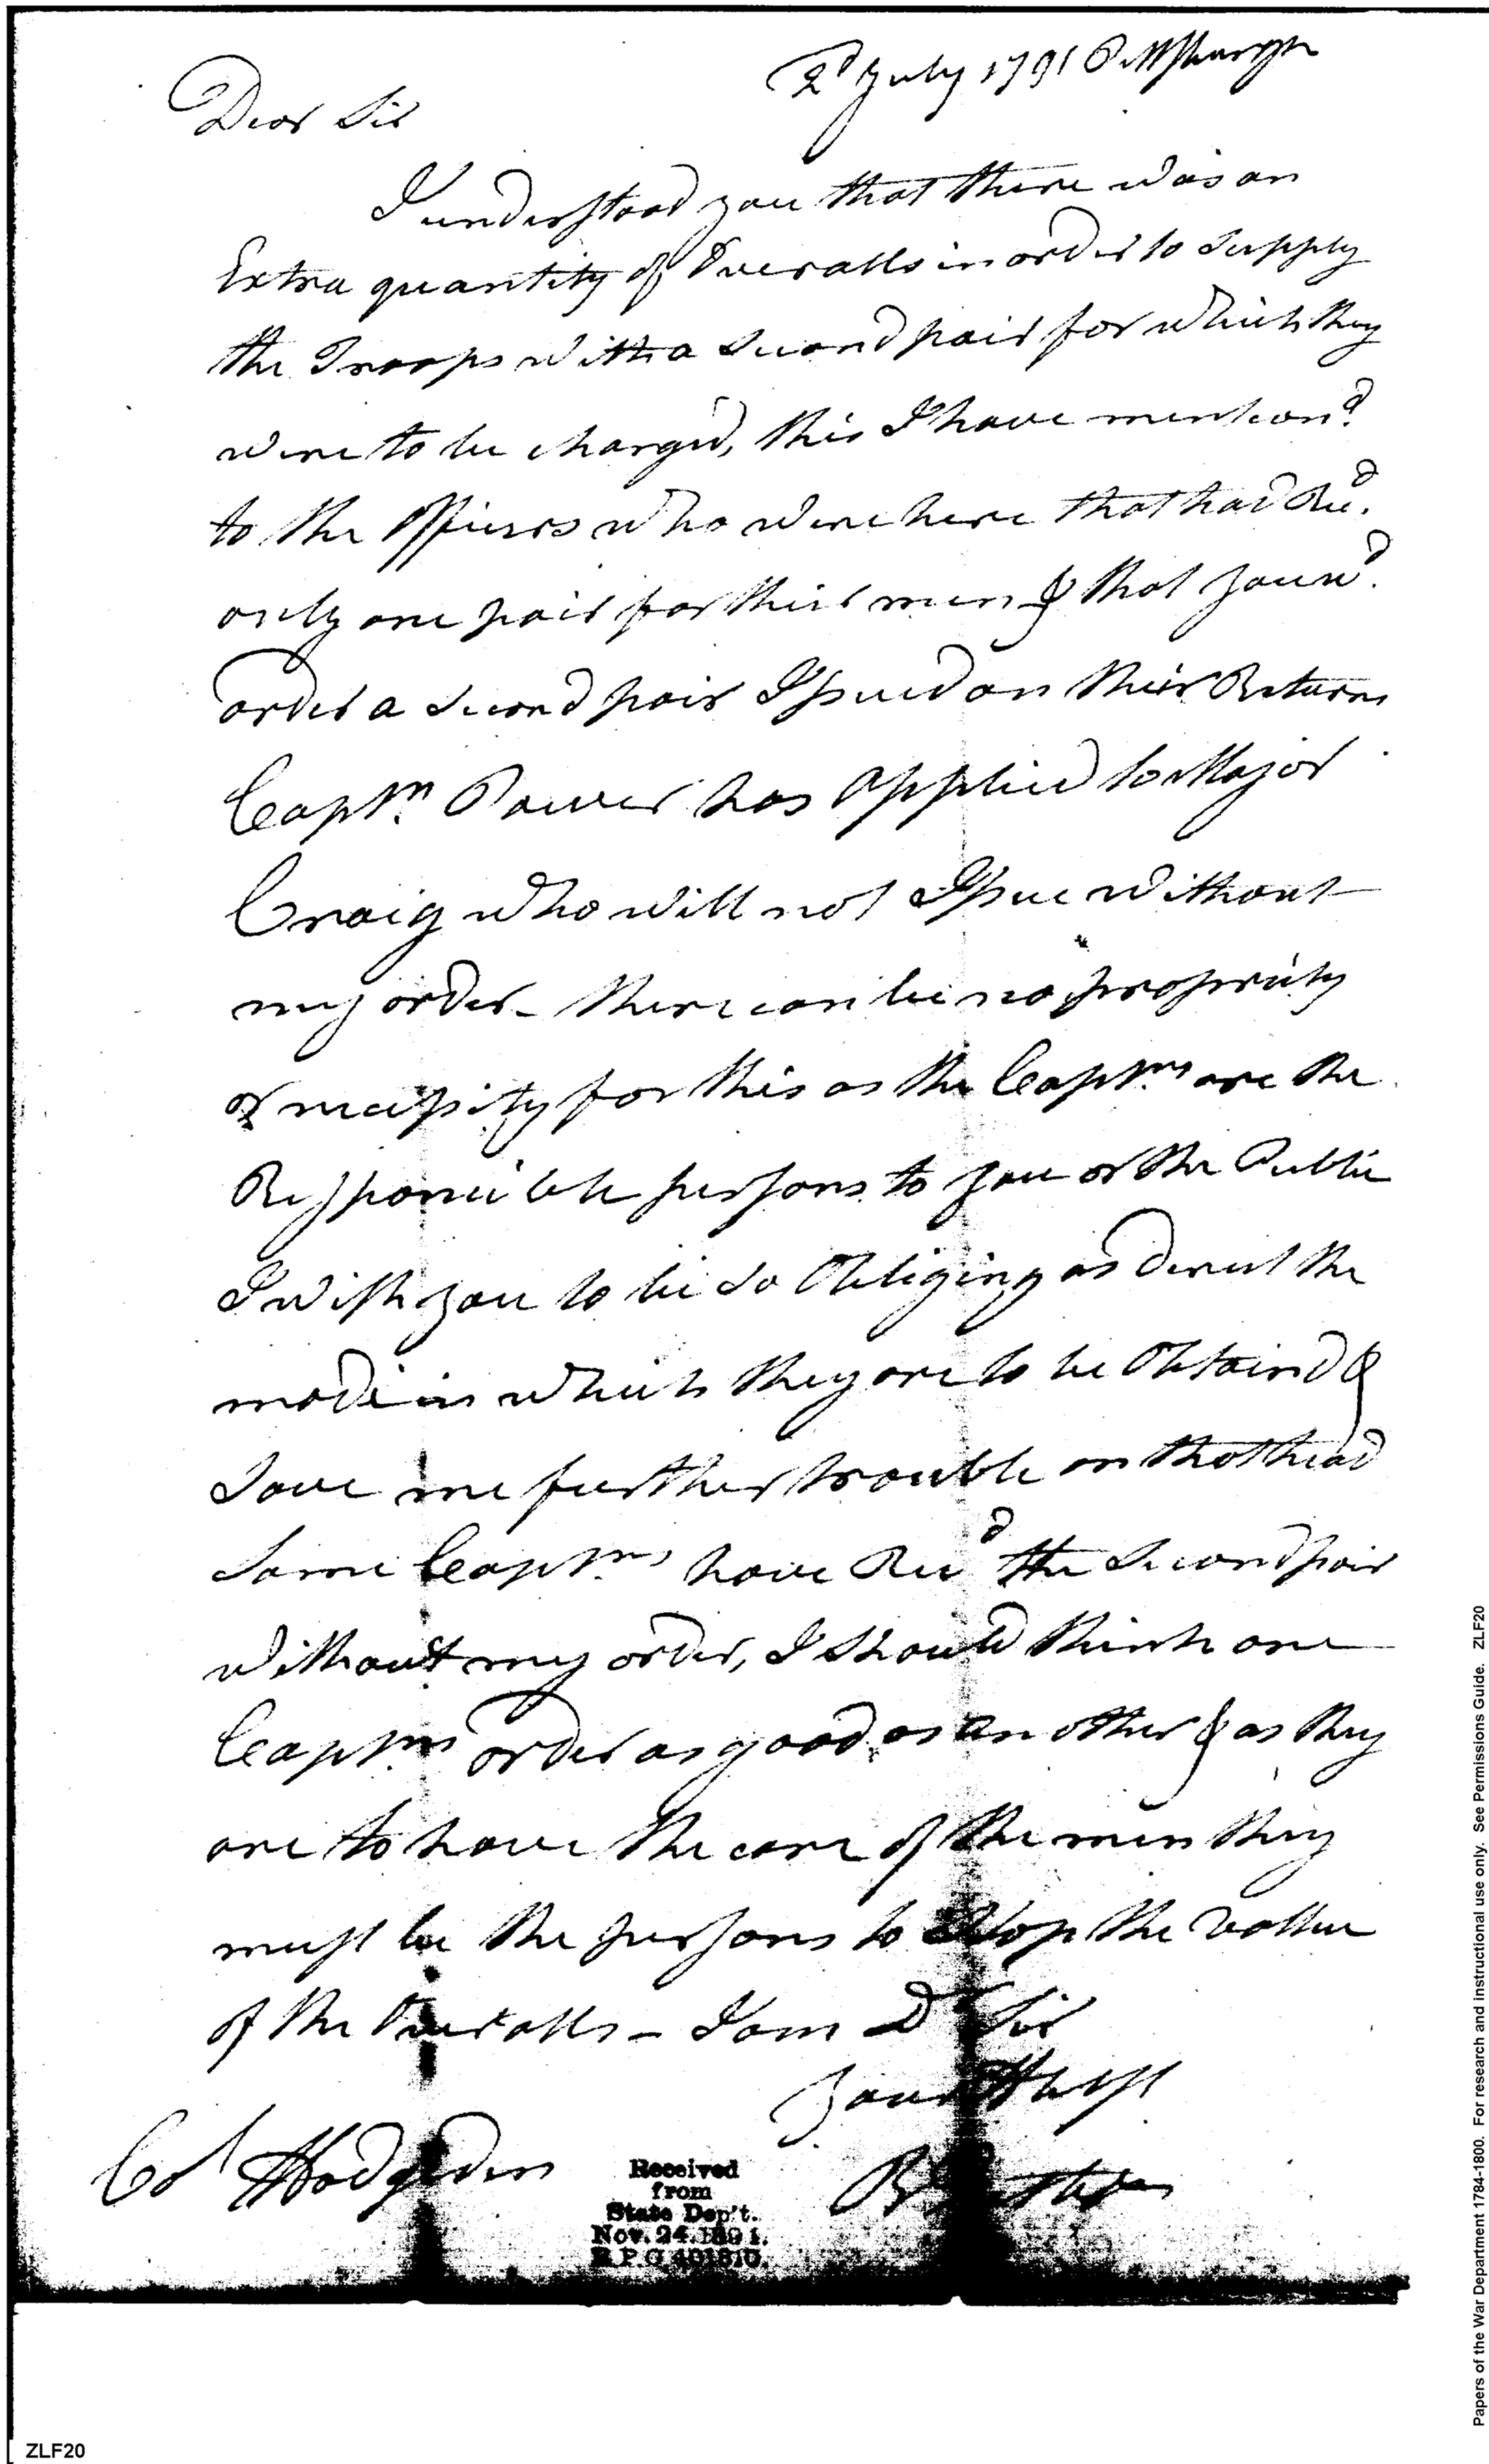 2d July 1791 Pittsburgh
Dear Sir
I understood you that there was an
Extra quantity of Overalls in order to Supply
the Troops with a Second pair for which they
were to be charged, this I have mention'd
to the Officers who were here that had Recd.
only one pair for their men & that you wd.
order a Second pair Issued on their Returns
Captn. Power has applied to Major
Craig who will not Issue without
my order - there can be no propriety
or necessity for this as the Captns are the
Responcible persons to you or the Public
I wish you to be so Obliging as direct the
mode in which they are to be Obtaind &
Save me further trouble on that head
Some Captns have Recd the Second pair
without my order, I should think one
Captns order as good as another & as they
are to have the care of the men they
must be the persons to Stop the vallue
of the Overalls - I am Dr Sir
Your Hble St
Col Hodgdon
R Butler
Received
from
State Dep't.
Nov. 24. 1891.
R. P. O 401810.
Papers of the War Department 1784-1800. For research and instructional use only. See Permissions Guide. ZLF20
ZLF20